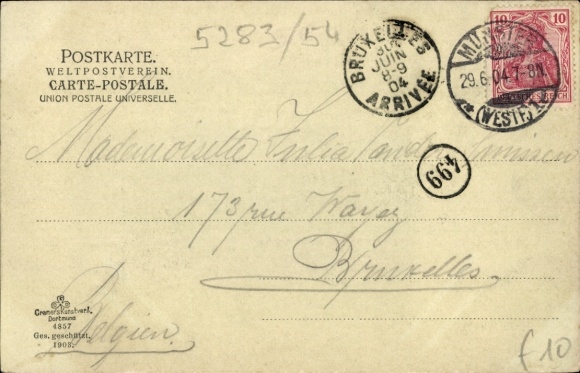 5283/54
POSTKARTE.
WELTPOSTVEREIN.
CARTE-POSTALE.
UNION POSTALE UNIVERSELLE.
BRUXELLES
JUIN
8-9
04
ARRIVÉE
10 10
MÜNSTER
29.6.04.7-8N.
(WESTF.)
Mademoiselle Julia
499
173 rue Wavez
Bruxelles.
Belgien.
Cramers Kunstverl.
Dortmund
4857
Ges. geschützt.
1903.
f10